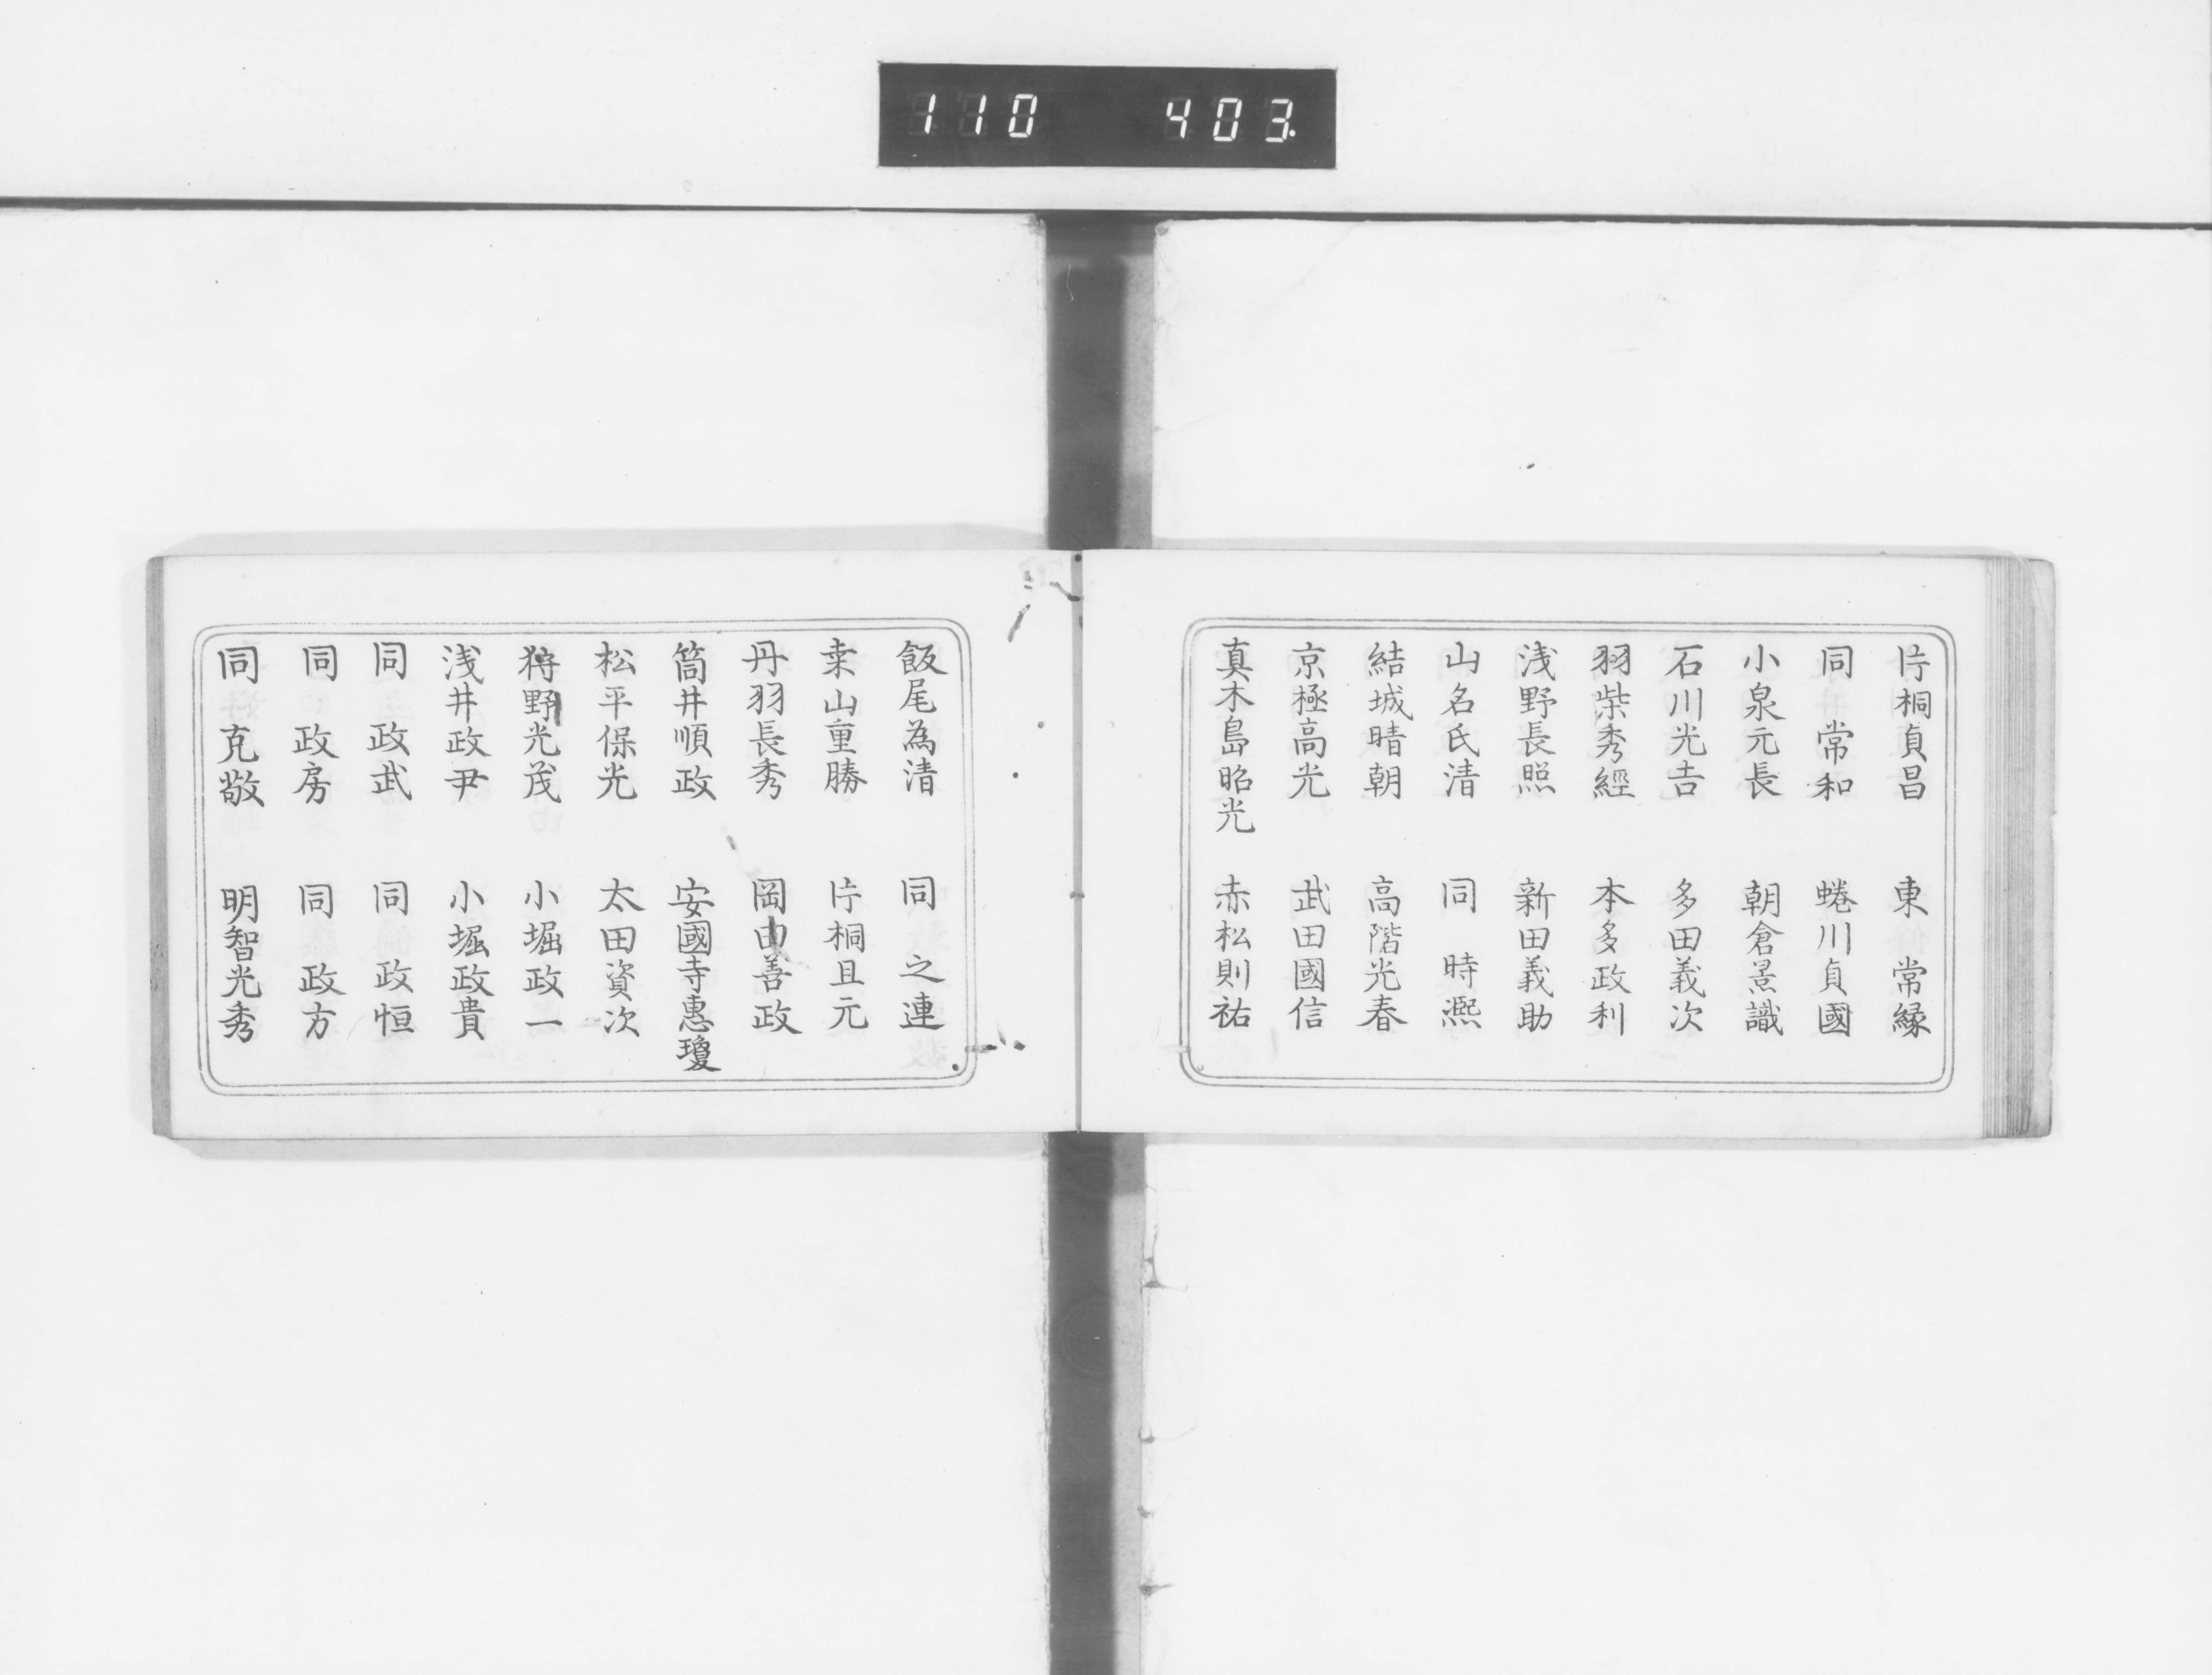 110 403.
片桐貞昌 東常縁
同常和 蜷川貞國
小泉元長 朝倉景識
石川光吉 多田義次
羽柴秀經 本多政利
浅野長照 新田義助
山名氏清 同時凞
結城晴朝 高階光春
京極高光 武田國信
真木島昭光 赤松則祐
飯尾為清 同之連
桒山重勝 片桐且元
丹羽長秀 岡田善政
筒井順政 安國寺惠瓊
松平保光 太田資次
狩野光茂 小堀政一
浅井政尹 小堀政貴
同政武 同政恒
同政房 同政方
同克敬 明智光秀